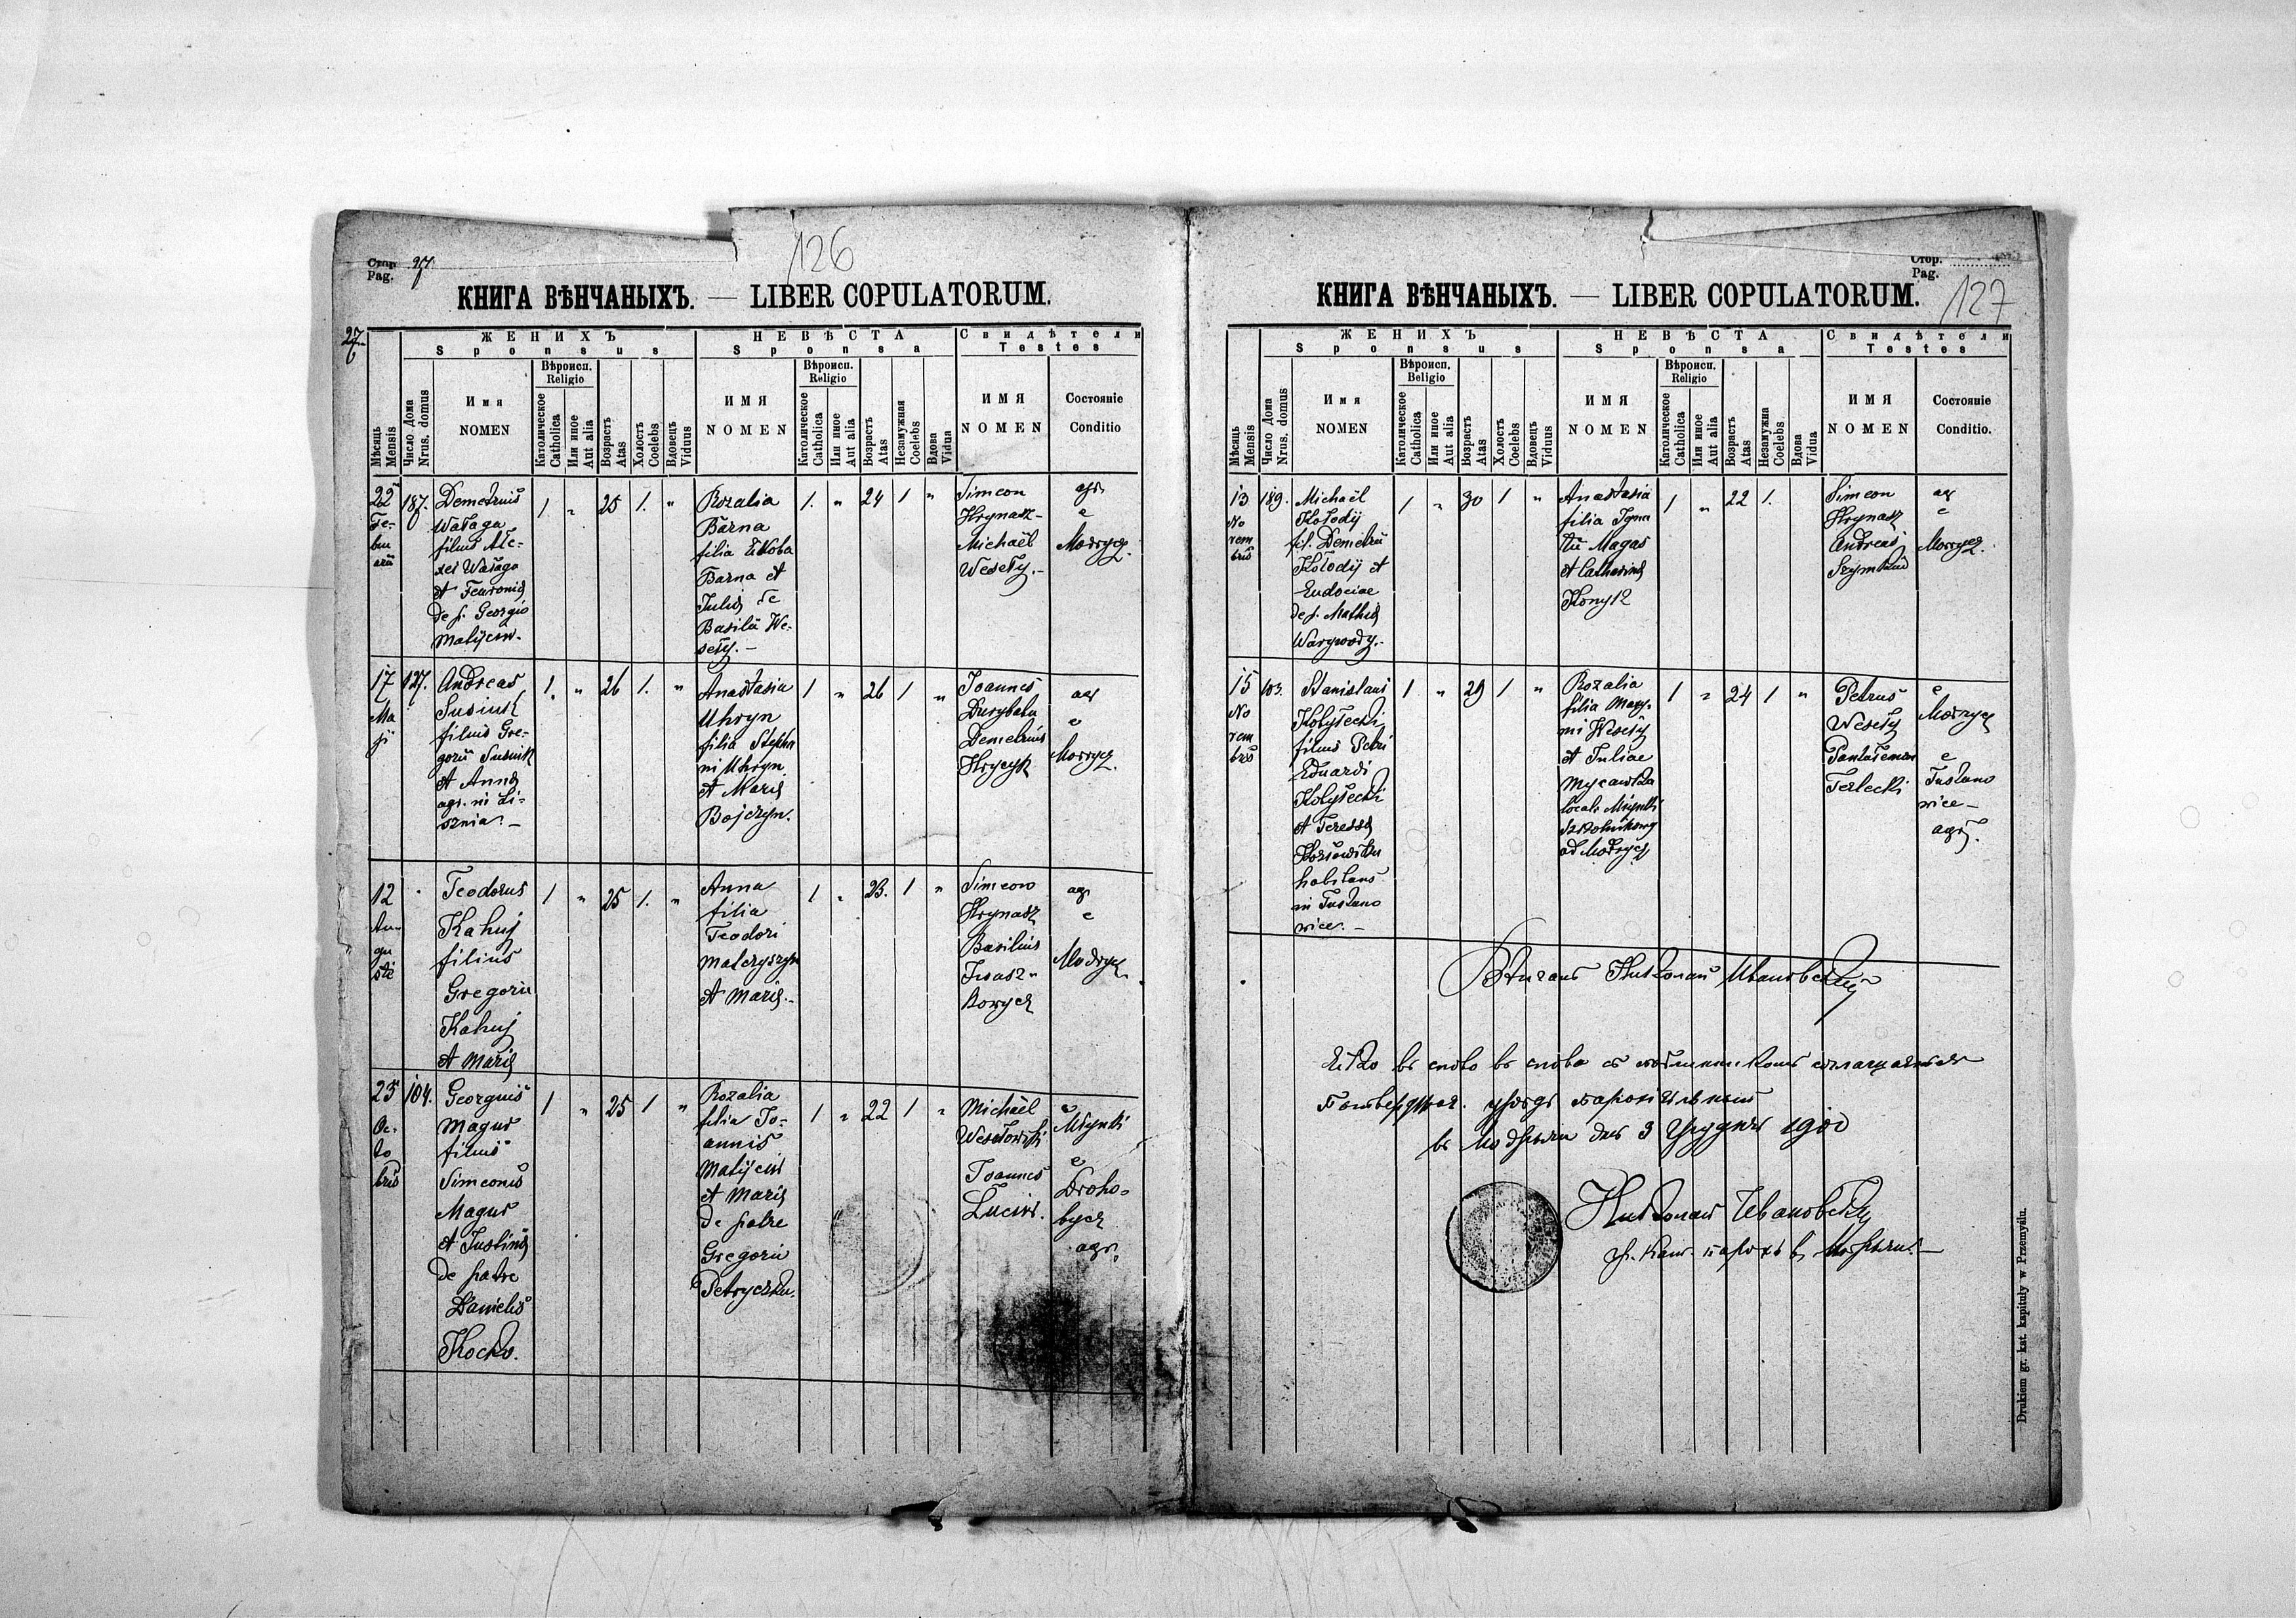 Стор. 27
Pag.
126
КНИГА ВѢНЧАНЫХЪ. — LIBER COPULATORUM.
27
Мѣсяць Mensis
Число Дома Nrus. domus
ЖЕНИХЪ
Sponsus
Имя
NOMEN
Вѣроисп.
Religio
Католическое Catholica
Или иное Aut alia
Возрастъ Atas
Холостъ Coelebs
Вдовецъ Viduus
НЕВѢСТА
Sponsa
ИМЯ
NOMEN
Вѣроисп.
Religio
Католическое Catholica
Или иное Aut alia
Возрастъ Atas
Незамужная Coelebs
Вдова Vidua
Свидѣтели
Testes
ИМЯ
NOMEN
Состояніе
Conditio
22
Fe-
bru
arii
187.
Demetrius
Wałaga
filius Ale-
xei Wałaga
et Fevronia
de p. Georgio
Matijciw.
1 " 25 1. "
Rozalia
Barna
filia Jakoba
Barna et
Julia de
Basilii We-
seły.—
1. " 24 1 "
Simeon
Hrynasz
Michaël
Weseły.—
agr.
e
Modrycz.
17
Ma
ji
127.
Andreas
Susiuk
filius Gre-
gorii Susiuk
et Anna
agr. in Li-
sznia.—
1. " 26 1. "
Anastasia
Uhryn
filia Stepha
ni Uhryn
et Maria
Bojczyn.
1 " 26 1 "
Joannes
Durybaba
Demetrius
Hrycyk
agr
e
Modrycz.
12
Au-
gu
sti
Teodorus
Kahuj
filius
Gregorii
Kahuj
et Maria
1 " 25 1. "
Anna
filia
Teodori
Matczyszyn
et Maria.—
1 " 23. 1 "
Simeon
Hrynasz
Basilius
Iwasz-
kowycz
agr
e
Modrycz.
23
Oc-
to
bris
104.
Georgius
Magur
filius
Simeonis
Magur
et Justina
de patre
Danielis
Kocko.
1 " 25 1 "
Rozalia
filia Jo-
annis
Matijciw
et Maria
de patre
Gregorii
Petryczka.
1 " 22 1 "
Michaël
Wesołowski
Joannes
Łuciw.
e
Młynki
e
Droho-
bycz
agr.
Стор.
Pag.
127
КНИГА ВѢНЧАНЫХЪ. — LIBER COPULATORUM.
Мѣсяць Mensis
Число Дома Nrus. domus
ЖЕНИХЪ
Sponsus
Имя
NOMEN
Вѣроисп.
Beligio
Католическое Catholica
Или иное Aut alia
Возрастъ Atas
Холостъ Coelebs
Вдовецъ Viduus
НЕВѢСТА
Sponsa
ИМЯ
NOMEN
Вѣроисп.
Religio
Католическое Catholica
Или иное Aut alia
Возрастъ Atas
Незамужна Coelebs
Вдова Vidua
Свидѣтели
Testes
ИМЯ
NOMEN
Состояніе
Conditio.
13
No
vem
bris
189.
Michaël
Kołodij
fil. Demetrii
Kołodij et
Eudociae
de p. Mathia
Warywody.—
1 " 30 1 "
Anastasia
filia Igna
tii Magas
et Catharina
1 " 22 1.
Simeon
Hrynasz
Andreas
agr
e
Modrycz.
15
No
vem
bris
103.
Stanislaus
Kobyłecki
filius Petri
Eduardi
Kobyłecki
et Teressa
habitans
in Tustano
wice.—
1 " 29 1 "
Rozalia
filia Maxy-
mi Weseły
et Juliae
Mycawka
locat. Młynki
Szkolnikowy
ad Modrycz
1 " 24 1 "
Petrus
Weseły
Pantalemon
Terlecki
e
Modrycz
e
Tustano
wice—
agr.
Вѣнчавъ Николай Ивановскій
Яко въ слово въ слово съ подлинникомъ соглашается
потверджає. урядъ парохіяльный
въ Модрычи дня 3 Грудня 1900
Николай Ивановскій
гр. кат. парохъ въ Модрычи.—
Drukiem gr. kat. kapituły w Przemyślu.